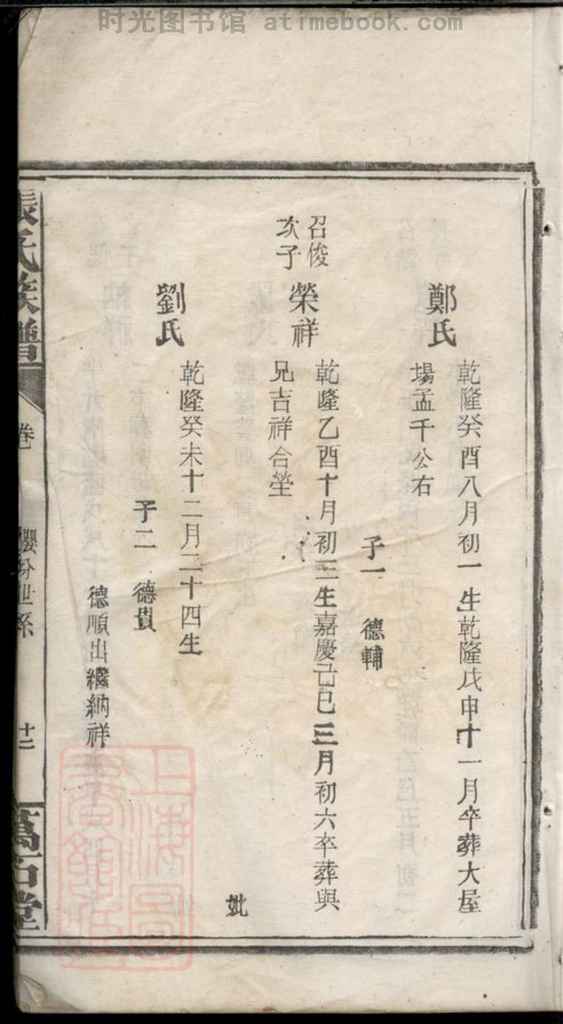 时光图书馆 atimebook.com
鄭氏
乾隆癸酉八月初一生乾隆戊申十一月卒葬大屋
場孟千公右
子一 德輔
召俊
次子
榮祥
乾隆乙酉十月初三生嘉慶己巳三月初六卒葬與
兄吉祥合塋
妣
劉氏
乾隆癸未十二月二十四生
子二 德貴
德順出繼納祥
張氏族譜
卷
世系
廿二
萬石堂